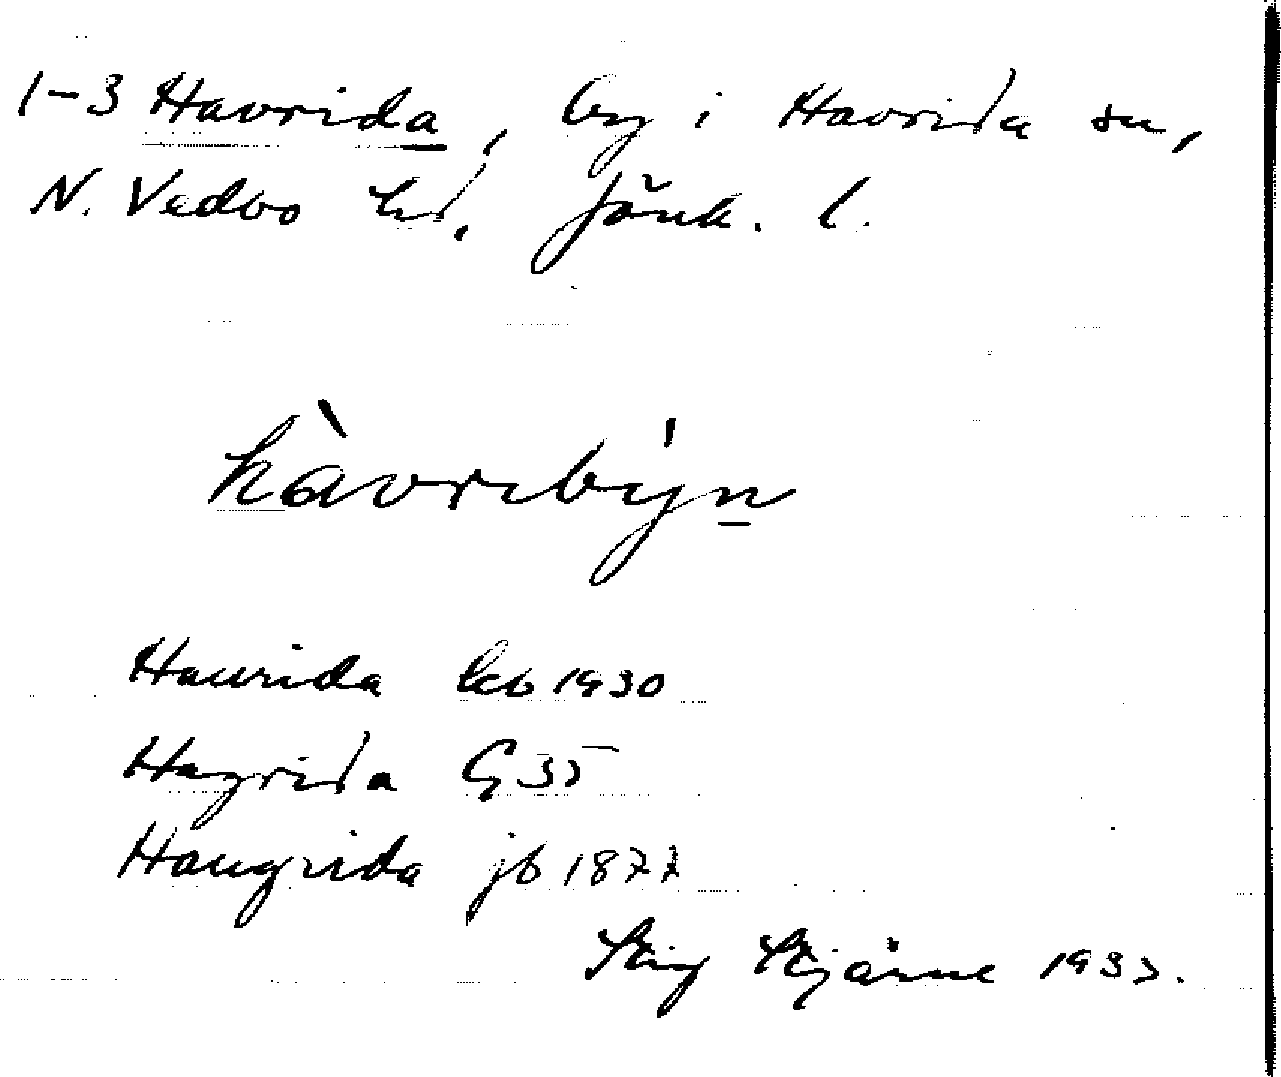 1-3 Havrida, by i Havrida sn,
N. Vedbo hd, Jönk. l.
hàvribýn
Haurida leb 1930
Hagrida G 35
Haugrida jb 1877
Stig Stjärne 1933.